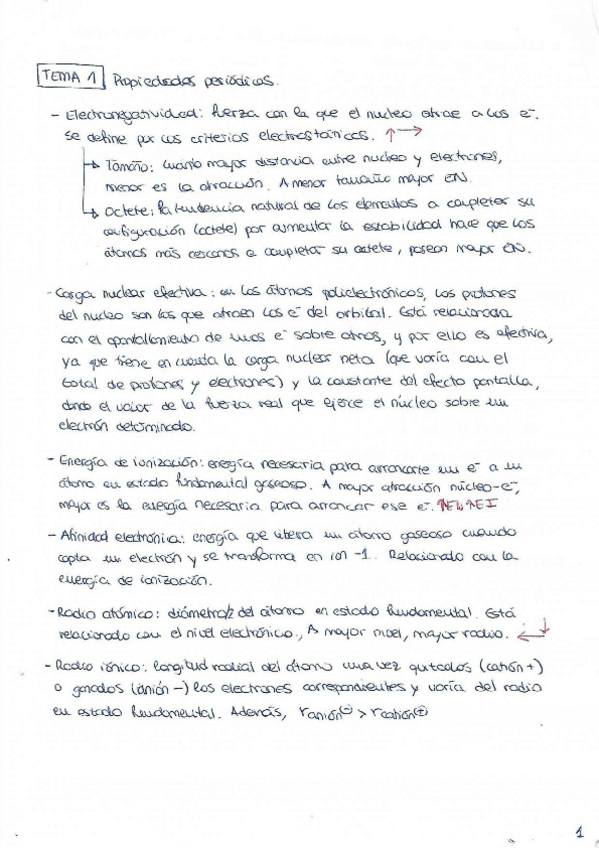 TEMA 1 Propiedades periódicas.
- Electronegatividad: fuerza con la que el nucleo atrae a los e⁻.
Se define por los criterios electrostáticos. ↑→
→ Tamaño: cuanto mayor distancia entre nucleo y electrones,
menor es la atracción. A menor tamaño mayor EN.
→ Octete: la tendencia natural de los elementos a completar su
configuración (octete) por aumentar la estabilidad hace que los
átomos más cercanos a completar su octete, posean mayor EN.
- Carga nuclear efectiva: en los átomos polielectrónicos, los protones
del nucleo son los que atraen los e⁻ del orbital. Está relacionada
con el apantallamiento de unos e⁻ sobre otros, y por ello es efectiva,
ya que tiene en cuenta la carga nuclear neta (que varía con el
total de protones y electrones) y la constante del efecto pantalla,
dando el valor de la fuerza real que ejerce el núcleo sobre un
electrón determinado.
- Energía de ionización: energía necesaria para arrancarle un e⁻ a un
átomo en estado fundamental gaseoso. A mayor atracción núcleo-e⁻,
mayor es la energía necesaria para arrancar ese e⁻. ↑EN ↑EI
- Afinidad electrónica: energía que libera un átomo gaseoso cuando
capta un electrón y se transforma en ion -1. Relacionado con la
energía de ionización.
- Radio atómico: diámetro/2 del átomo en estado fundamental. Está
relacionado con el nivel electrónico., A mayor nivel, mayor radio. ←↓
- Radio iónico: longitud radial del átomo una vez quitados (catión +)
o ganados (anión -) los electrones correspondientes y varía del radio
en estado fundamental. Además, r anión⊖ > r catión⊕
1